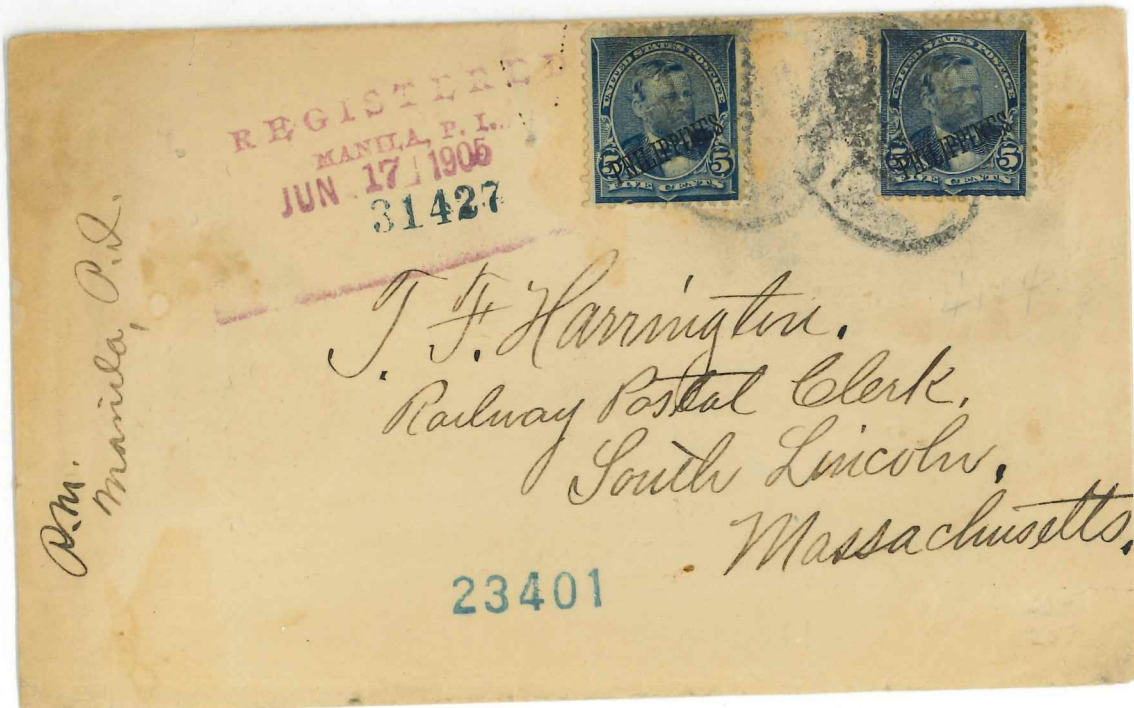 REGISTERED
MANILA, P. I.
JUN 17 1905
31427
UNITED STATES POSTAGE
PHILIPPINES
5 5
FIVE CENTS
UNITED STATES POSTAGE
PHILIPPINES
5 5
FIVE CENTS
T. F. Harrington.
Railway Postal Clerk.
South Lincoln,
Massachusetts.
P.M.
Manila, P.I.
23401